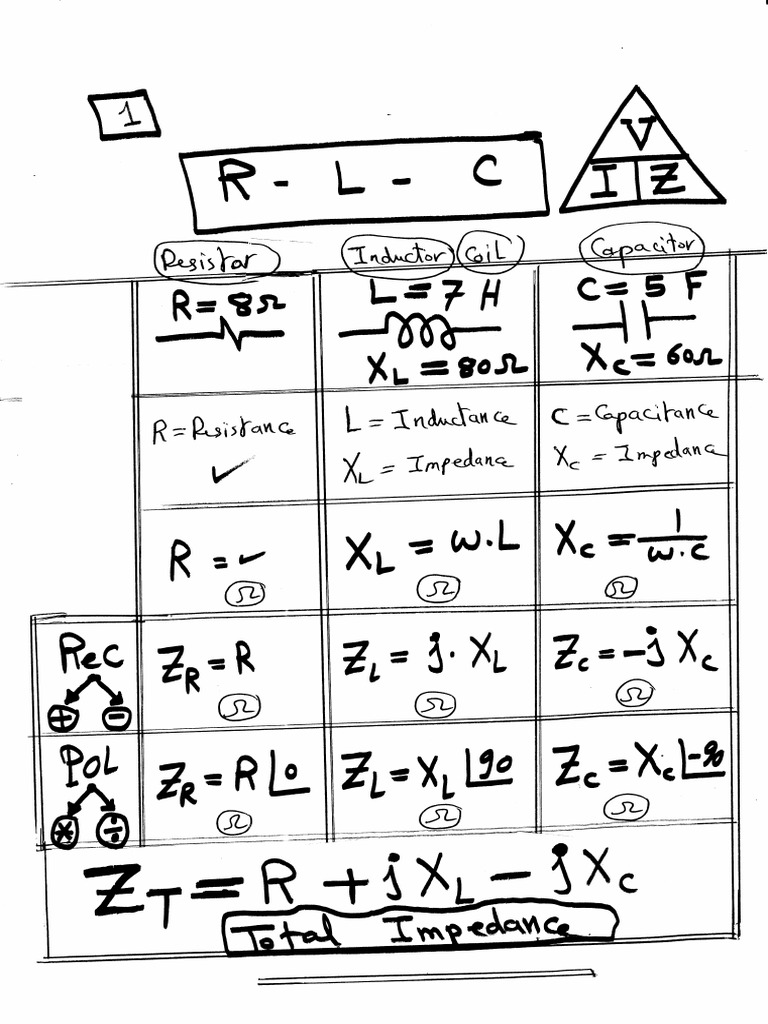 1
R - L - C
V
I Z
Resistor Inductor Coil Capacitor
R = 8Ω L = 7 H C = 5 F
X_L = 80Ω X_C = 60Ω
R = Resistance L = Inductance C = Capacitance
✓ X_L = Impedanc X_C = Impedanc
R = ✓ X_L = ω.L X_C = 1/ω.C
Ω Ω Ω
Rec Z_R = R Z_L = j. X_L Z_C = -j X_C
+ - Ω Ω Ω
Pol Z_R = R∠0 Z_L = X_L∠90 Z_C = X_C∠-90
* ÷ Ω Ω Ω
Z_T = R + j X_L - j X_C
Total Impedance